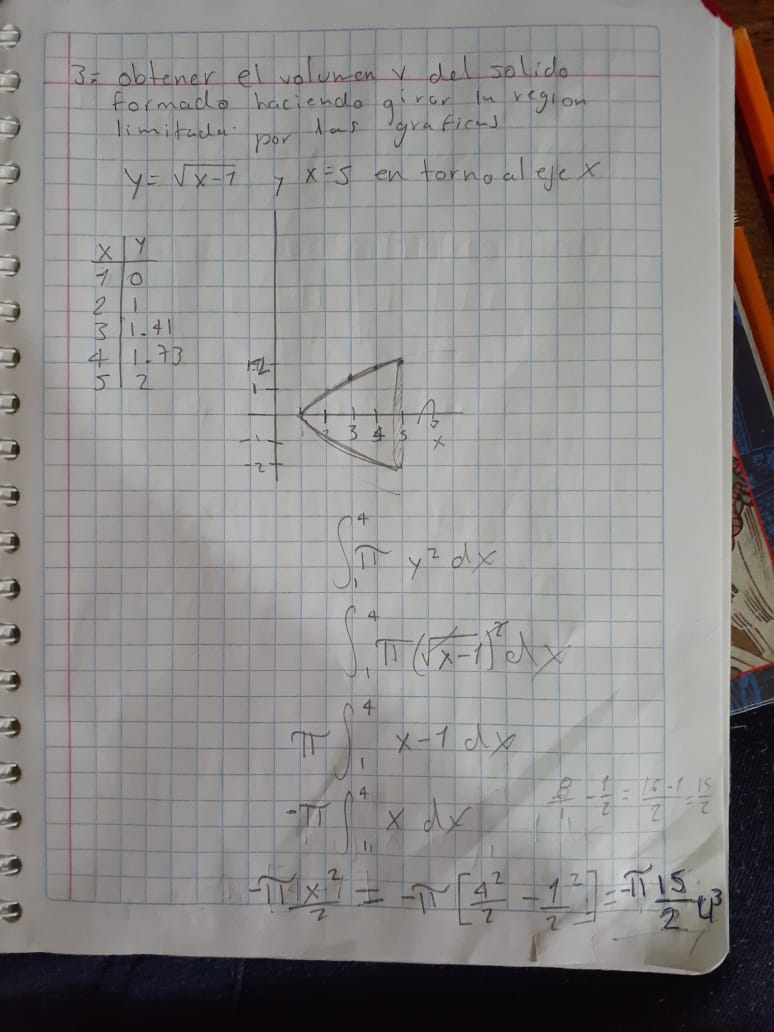 3= obtener el volumen v del solido
formado haciendo girar la region
limitada por las graficas
y = √x-1 y x=5 en torno al eje x
x | y
1 | 0
2 | 1
3 | 1.41
4 | 1.73
5 | 2
2
1
1 2 3 4 5
x
-1
-2
∫₁⁴ π y² dx
∫₁⁴ π(√x-1)² dx
π ∫₁⁴ x-1 dx
8/1 - 1/2 = 16-1/2 = 15/2
-π ∫₁⁴ x dx
-π 1x²/2 = -π [4²/2 - 1²/2] = -π 15/2 u³